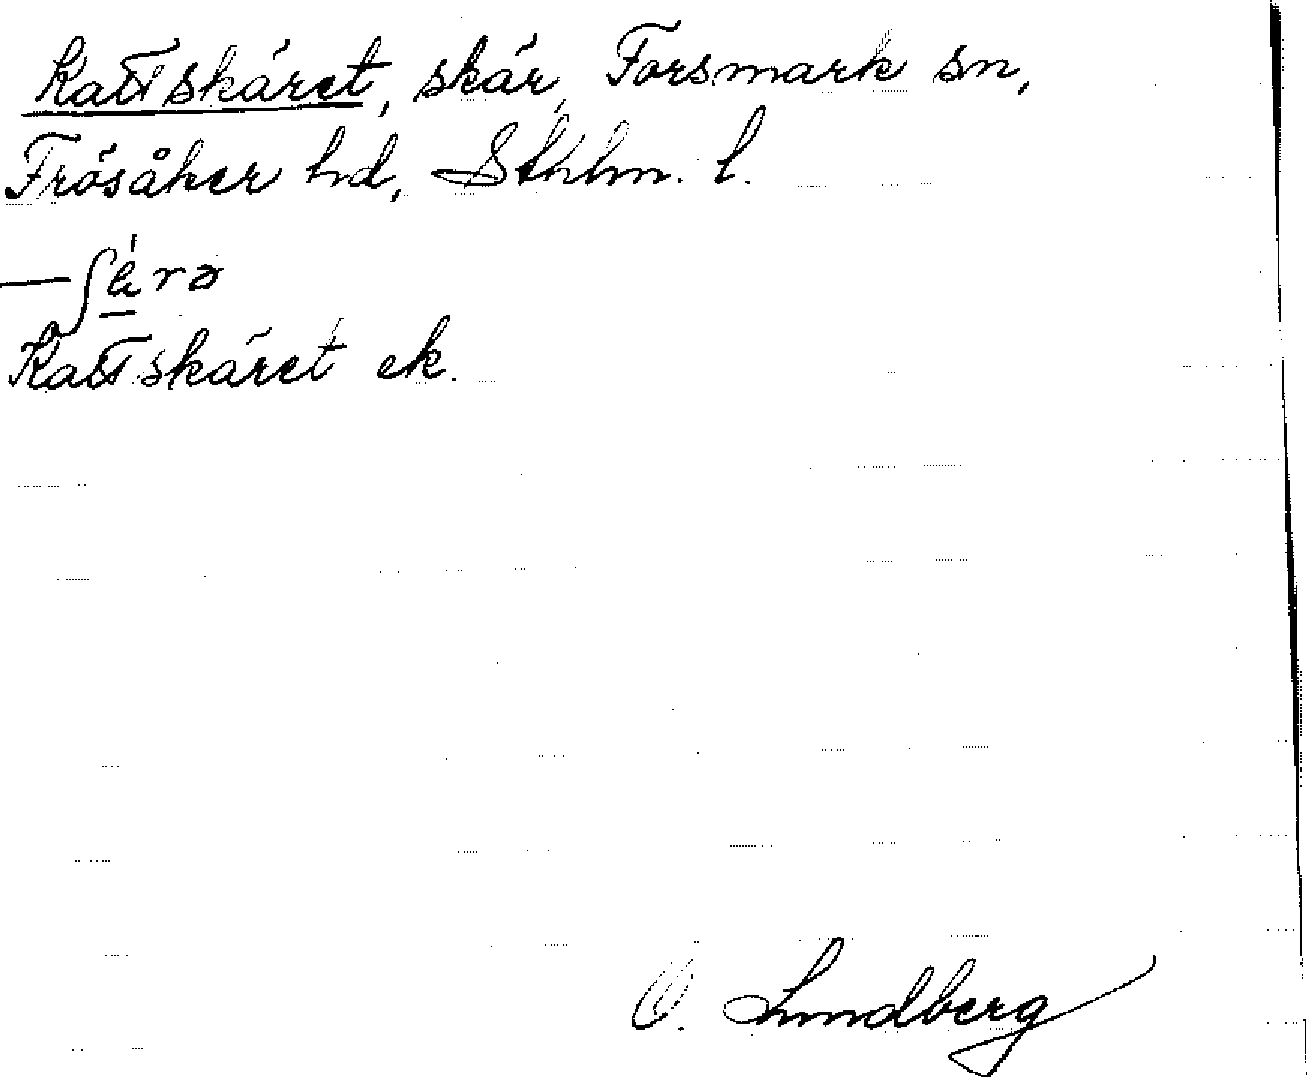 Kattskäret, skär, Forsmark sn,
Frösåker hd, Sthlm. l.
Kattskäret ek.
O. Lundberg